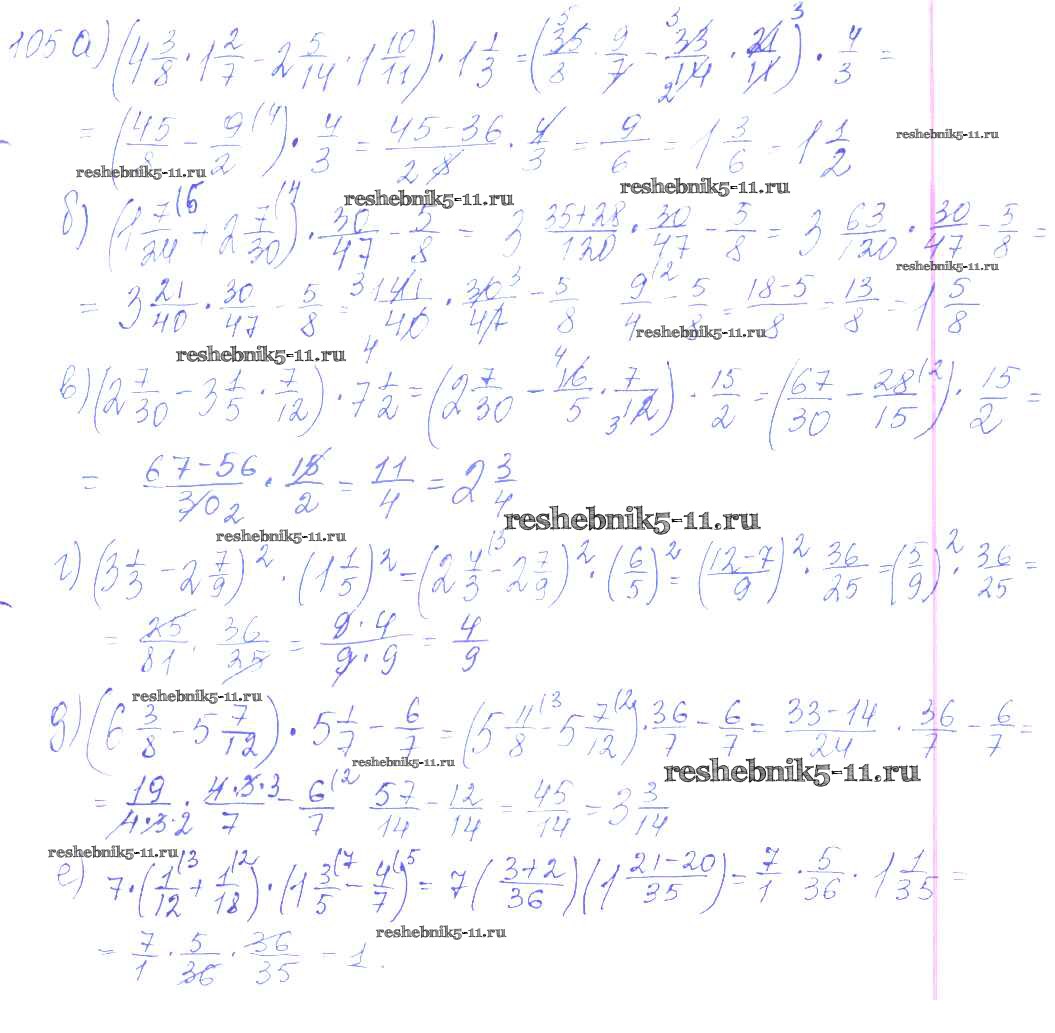 105 а) (4 3/8 · 1 2/7 − 2 5/14 · 1 10/11) · 1 1/3 = (35/8 · 9/7 − 33/14 · 21/11) · 4/3 =
= (45/8 − 9/2) · 4/3 = (45−36)/8 · 4/3 = 9/6 = 1 3/6 = 1 1/2
reshebnik5-11.ru
reshebnik5-11.ru
reshebnik5-11.ru
reshebnik5-11.ru
б) (1 7/24 + 2 7/30) · 30/47 − 5/8 = 3 (35+28)/120 · 30/47 − 5/8 = 3 63/120 · 30/47 − 5/8 =
reshebnik5-11.ru
= 3 21/40 · 30/47 − 5/8 = 141/40 · 30/47 − 5/8 9/4 − 5/8 = (18−5)/8 = 13/8 = 1 5/8
reshebnik5-11.ru
reshebnik5-11.ru
в) (2 7/30 − 3 1/5 · 7/12) · 7 1/2 = (2 7/30 − 16/5 · 7/12) · 15/2 = (67/30 − 28/15) · 15/2 =
= (67−56)/30 · 15/2 = 11/4 = 2 3/4
reshebnik5-11.ru
reshebnik5-11.ru
г) (3 1/3 − 2 7/9)² · (1 1/5)² = (2 4/3 − 2 7/9)² · (6/5)² = ((12−7)/9)² · 36/25 = (5/9)² · 36/25 =
= 25/81 · 36/25 = (9·4)/(9·9) = 4/9
reshebnik5-11.ru
д) (6 3/8 − 5 7/12) · 5 1/7 − 6/7 = (5 11/8 − 5 7/12) · 36/7 − 6/7 = (33−14)/24 · 36/7 − 6/7 =
reshebnik5-11.ru
reshebnik5-11.ru
= 19/(4·3·2) · (4·3·3)/7 − 6/7 57/14 − 12/14 = 45/14 = 3 3/14
reshebnik5-11.ru
е) 7 · (1/12 + 1/18) · (1 3/5 − 4/7) = 7 ((3+2)/36) (1 (21−20)/35) = 7/1 · 5/36 · 1 1/35 =
reshebnik5-11.ru
= 7/1 · 5/36 · 36/35 = 1.